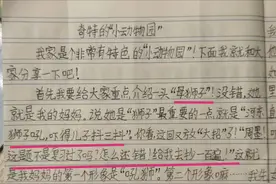 奇特的"小动物园"
我家是个非常有特色的"小动物园"!下面我就和大
家分享一下吧!
首先我要给大家重点介绍一头"母狮子"!没错,她
就是我的妈妈,说她是"狮子"最重要的一点,就是"河东
狮子吼,吓得儿子抖三抖",你看这回又放"大招"了!"周墨!
这题不是复习过了吗?怎么还错!给我去抄一百遍!"反正
是我妈妈的第一个形象是"吼狮"。第二个形象嘛